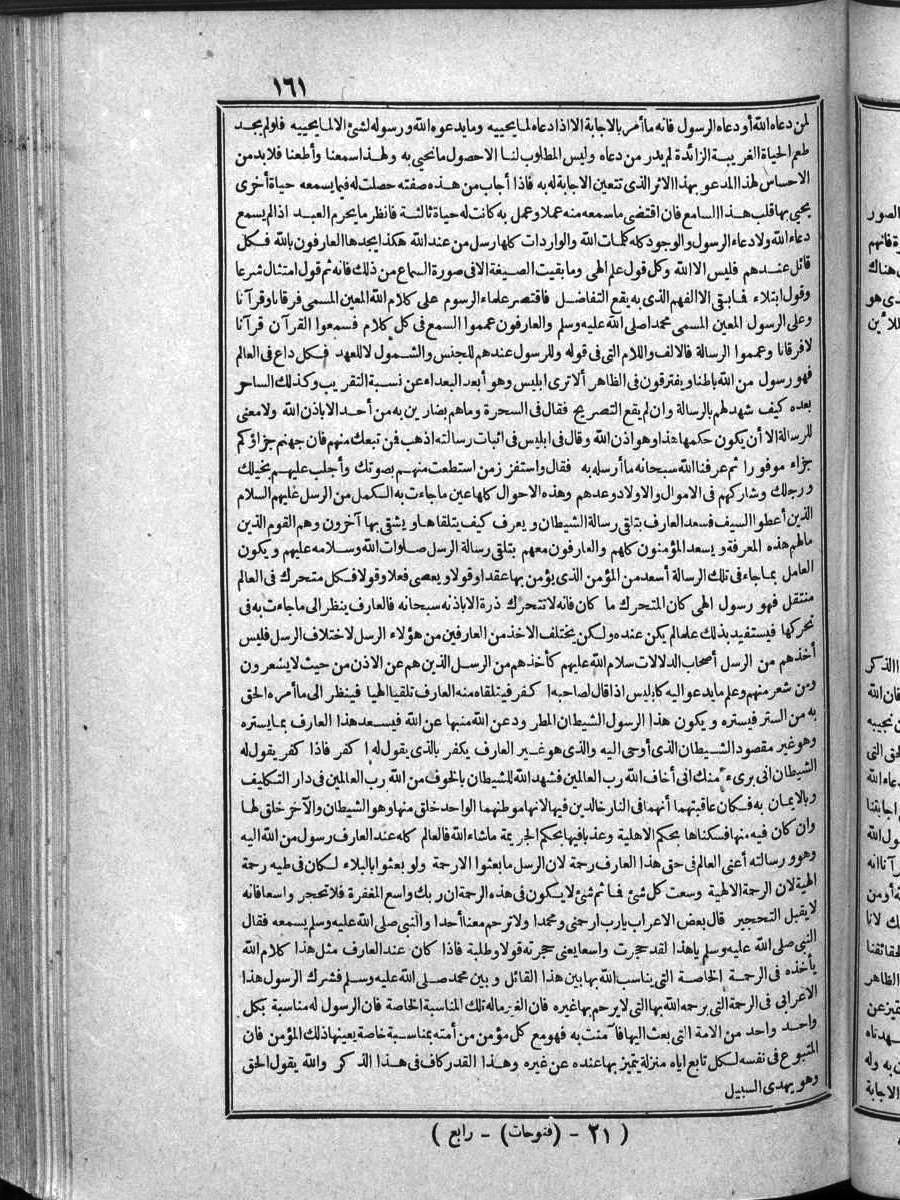 ١٦١
لمن دعاه الله أو دعاه الرسول فانه ما أمر بالاجابة الا اذا دعاه لما يحييه وما يدعوه الله ورسوله لشئ الا لما يحييه فلو لم يجد
طعم الحياة الغريبة الزائدة لم يدر من دعاه وليس المطلوب لنا الاحصول ما نحيى به ولهذا سمعنا وأطعنا فلابد من
الاحساس لهذا المدعو بهذا الاثر الذى تتعين الاجابة له به فاذا أجاب من هذه صفته حصلت له فيما يسمعه حياة أخرى
يحيى بها قلب هذا السامع فان اقتضى ما سمعه منه عملا وعمل به كانت له حياة ثالثة فانظر ما يحرم العبد اذا لم يسمع
دعاء الله ولا دعاء الرسول والوجود كله كلمات الله والواردات كلها رسل من عند الله هكذا يجدها العارفون بالله فكل
قائل عندهم فليس الا الله وكل قول علم الهى وما بقيت الصيغة الا فى صورة السماع من ذلك فانه ثم قول امتثال شرعا
وقول ابتلاء فما بقى الا الفهم الذى به يقع التفاضل فاقتصر علماء الرسوم على كلام الله المعين المسمى فرقانا وقرآنا
وعلى الرسول المعين المسمى محمدا صلى الله عليه وسلم والعارفون عمموا السمع فى كل كلام فسمعوا القرآن قرآنا
لا فرقانا وعمموا الرسالة فالالف واللام التى فى قوله وللرسول عندهم للجنس والشمول لا للعهد فكل داع فى العالم
فهو رسول من الله باطنا ويفترقون فى الظاهر ألا ترى ابليس وهو أبعد البعداء عن نسبة التقريب وكذلك الساحر
بعده كيف شهد لهم بالرسالة وان لم يقع التصريح فقال فى السحرة وما هم بضارين به من أحد الا باذن الله ولا معنى
للرسالة الا أن يكون حكمها هذا وهو اذن الله وقال فى ابليس فى اثبات رسالته اذهب فمن تبعك منهم فان جهنم جزاؤكم
جزاء موفورا ثم عرفنا الله سبحانه ما أرسله به فقال واستفزز من استطعت منهم بصوتك وأجلب عليهم بخيلك
ورجلك وشاركهم فى الاموال والاولاد وعدهم وهذه الاحوال كلها عين ما جاءت به الكمل من الرسل عليهم السلام
الذين أعطوا السيف فسعد العارف بتلقى رسالة الشيطان ويعرف كيف يتلقاها ويشقى بها آخرون وهم القوم الذين
ما لهم هذه المعرفة ويسعد المؤمنون كلهم والعارفون معهم بتلقى رسالة الرسل صلوات الله وسلامه عليهم ويكون
العامل بما جاء فى تلك الرسالة أسعد من المؤمن الذى يؤمن بها عقدا وقولا ويعصى فعلا وقولا فكل متحرك فى العالم
منتقل فهو رسول الهى كان المتحرك ما كان فانه لا تتحرك ذرة الا باذنه سبحانه فالعارف ينظر الى ما جاءت به فى
تحركها فيستفيد بذلك علما لم يكن عنده ولكن يختلف الاخذ من العارفين من هؤلاء الرسل لاختلاف الرسل فليس
أخذهم من الرسل أصحاب الدلالات سلام الله عليهم كأخذهم من الرسل الذين هم عن الاذن من حيث لا يشعرون
ومن شعر منهم وعلم ما يدعو اليه كابليس اذ قال لصاحبه اكفر فيتلقاه منه العارف تلقيا الهيا فينظر الى ما أمره الحق
به من الستر فيستره ويكون هذا الرسول الشيطان المطرود عن الله منبها عن الله فيسعد هذا العارف بما يستره
وهو غير مقصود الشيطان الذى أوحى اليه والذى هو غير العارف يكفر بالذى يقول له اكفر فاذا كفر يقول له
الشيطان انى برىء منك انى أخاف الله رب العالمين فشهد الله للشيطان بالخوف من الله رب العالمين فى دار التكليف
وبالايمان به فكان عاقبتهما أنهما فى النار خالدين فيها لانها موطنهما الواحد خلق منها وهو الشيطان والآخر خلق لها
وان كان فيه منها فسكناها بحكم الاهلية وعذبا فيها بحكم الجريمة ما شاء الله فالعالم كله عند العارف رسول من الله اليه
وهو ورسالته أعنى العالم فى حق هذا العارف رحمة لان الرسل ما بعثوا الا رحمة ولو بعثوا بالبلاء لكان فى طيه رحمة
الهية لان الرحمة الالهية وسعت كل شئ فما ثم شئ لا يكون فى هذه الرحمة ان ربك واسع المغفرة فلا تحجر واسعا فانه
لا يقبل التحجير قال بعض الاعراب يا رب ارحمنى ومحمدا ولا ترحم معنا أحدا والنبى صلى الله عليه وسلم يسمعه فقال
النبى صلى الله عليه وسلم يا هذا لقد حجرت واسعا يعنى حجرته قولا وطلبة فاذا كان عند العارف مثل هذا كلام الله
يأخذه فى الرحمة الخاصة التى يناسب الله بها بين هذا القائل وبين محمد صلى الله عليه وسلم فشرك الرسول هذا
الاعرابى فى الرحمة التى يرحمه الله بها التى لا يرحم بها غيره فان الغير ما له تلك المناسبة الخاصة فان الرسول له مناسبة بكل
واحد واحد من الامة التى بعث اليها فآمنت به فهو مع كل مؤمن من أمته بمناسبة خاصة يعينها ذلك المؤمن فان
المتبوع فى نفسه لكل تابع اياه منزلة يتميز بها عنده عن غيره وهذا القدر كاف فى هذا الذكر والله يقول الحق
وهو يهدى السبيل
( ٢١ - (فتوحات) - رابع )
الصور
ة فانهم
هناك
ذى هو
الذكر
فان الله
نجيبه
لحق التى
دعاء الله
اجابتنا
ول الله
رآنا انه
ة أو من
ك لانا
لحقائقنا
الظاهر
به وله
الاجابة